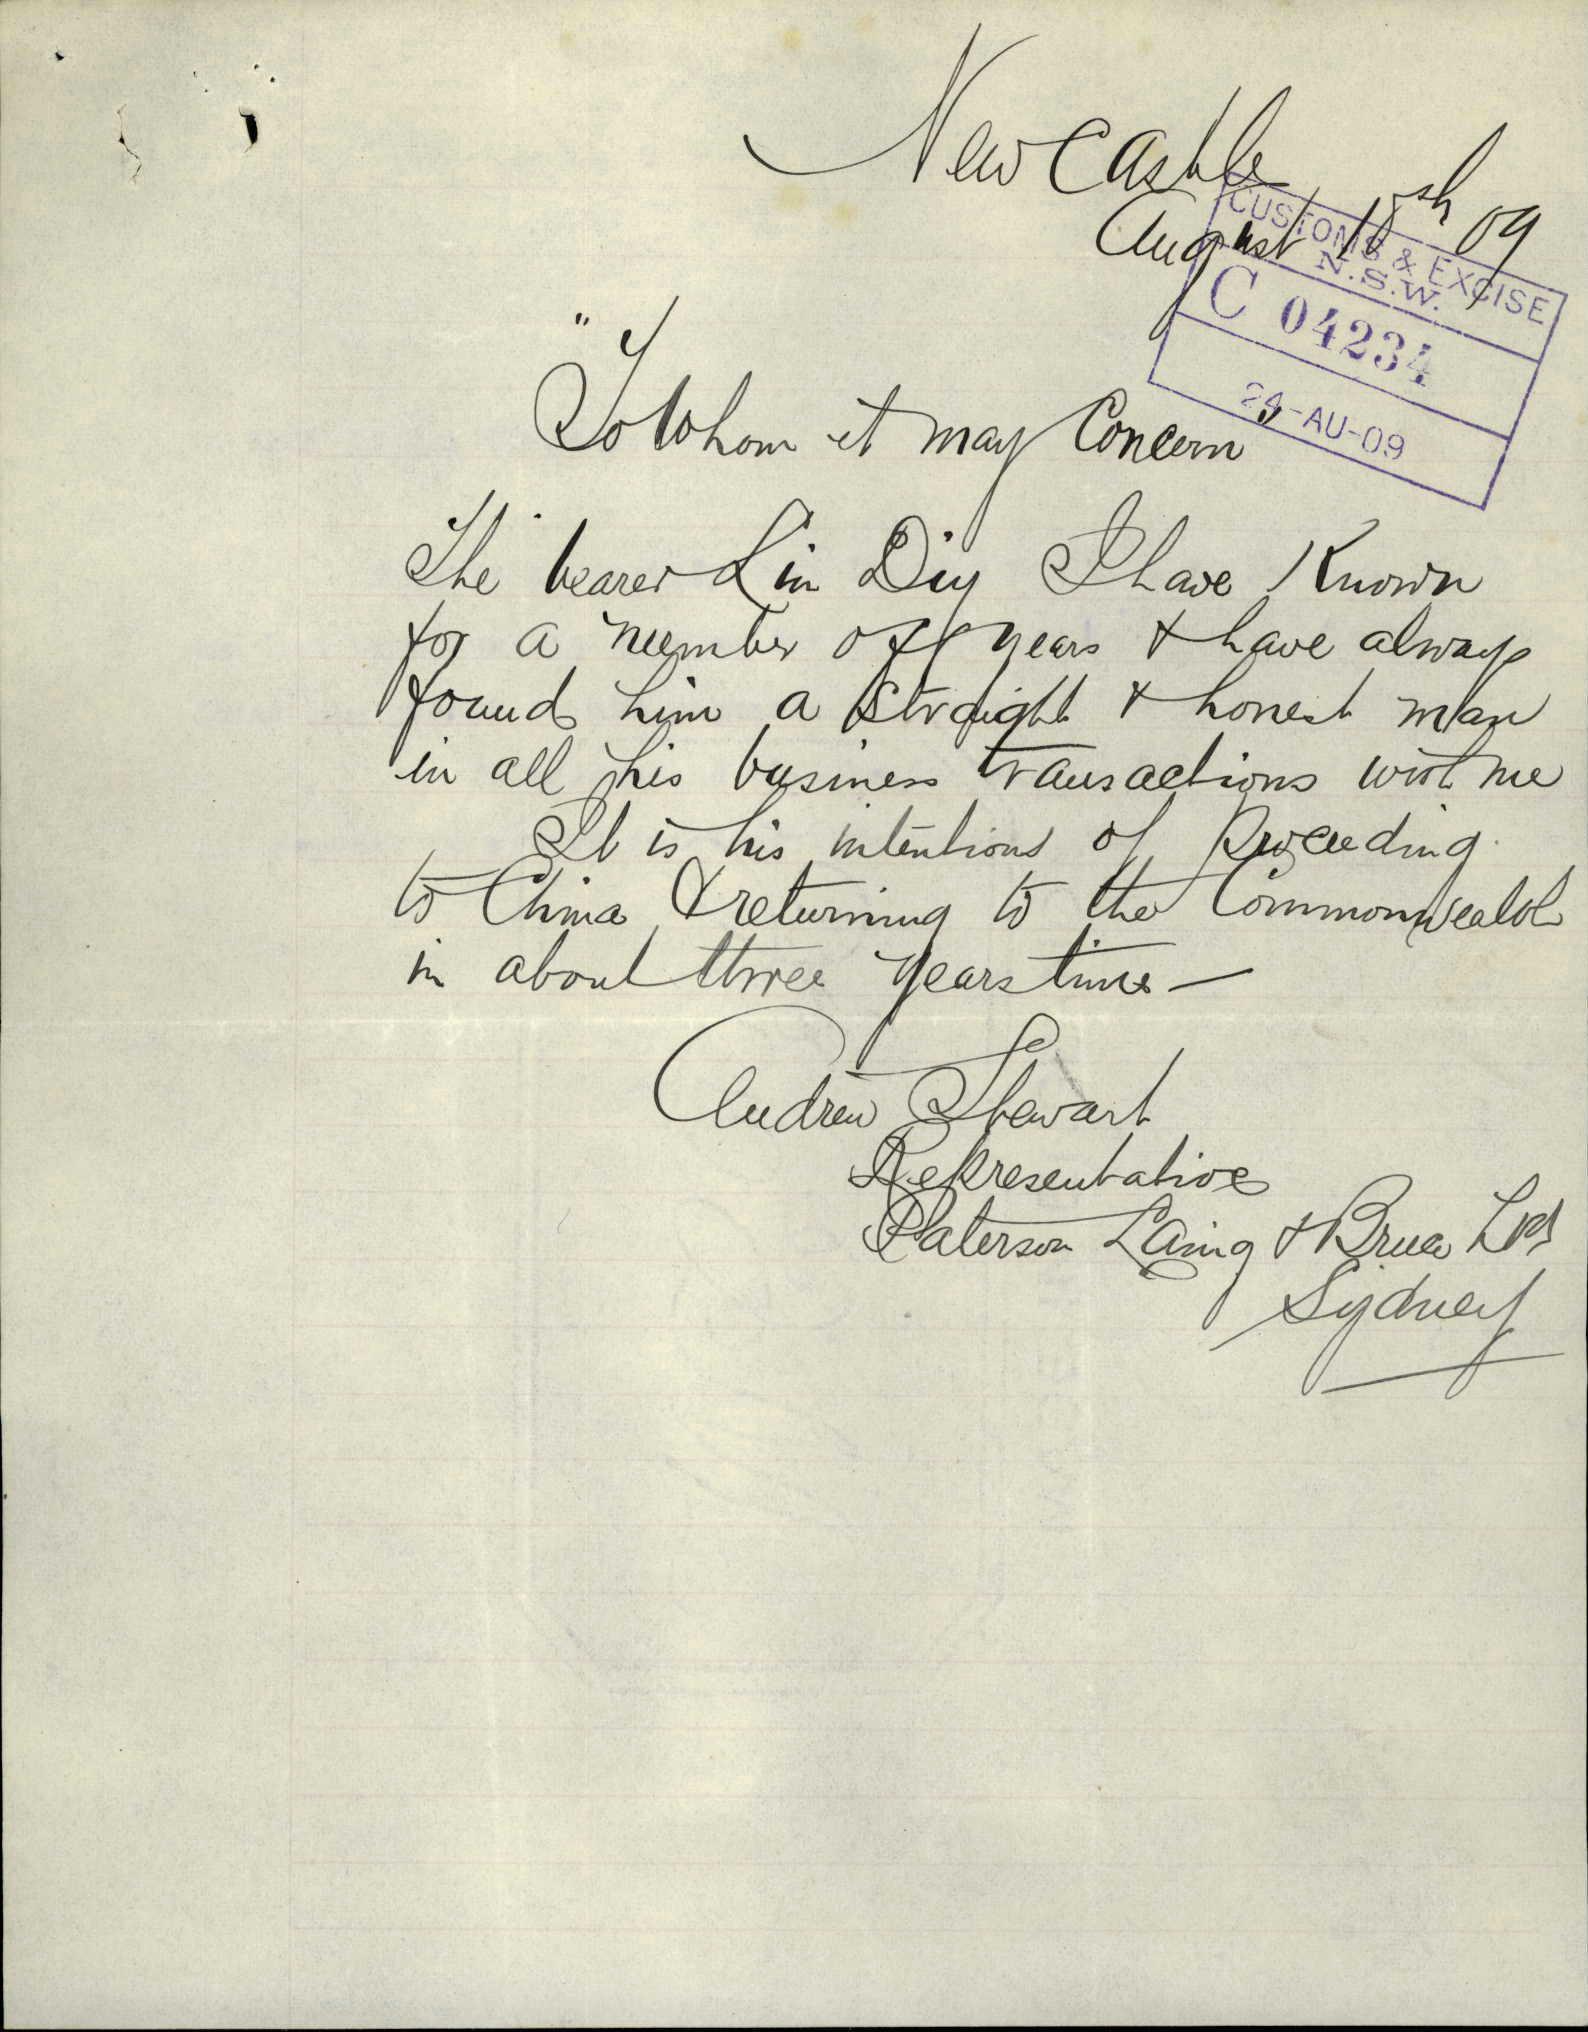 Newcastle
August 18th 09
CUSTOMS & EXCISE
N.S.W.
C 04234
24-AU-09
"To Whom it may Concern"
The bearer Lin Diy I have Known
for a number of years & have always
found him a straight & honest man
in all his business transactions with me
It is his intentions of proceeding
to China & returning to the Commonwealth
in about three years time —
Andrew Stewart
Representative
Paterson Laing & Bruce Ltd
Sydney